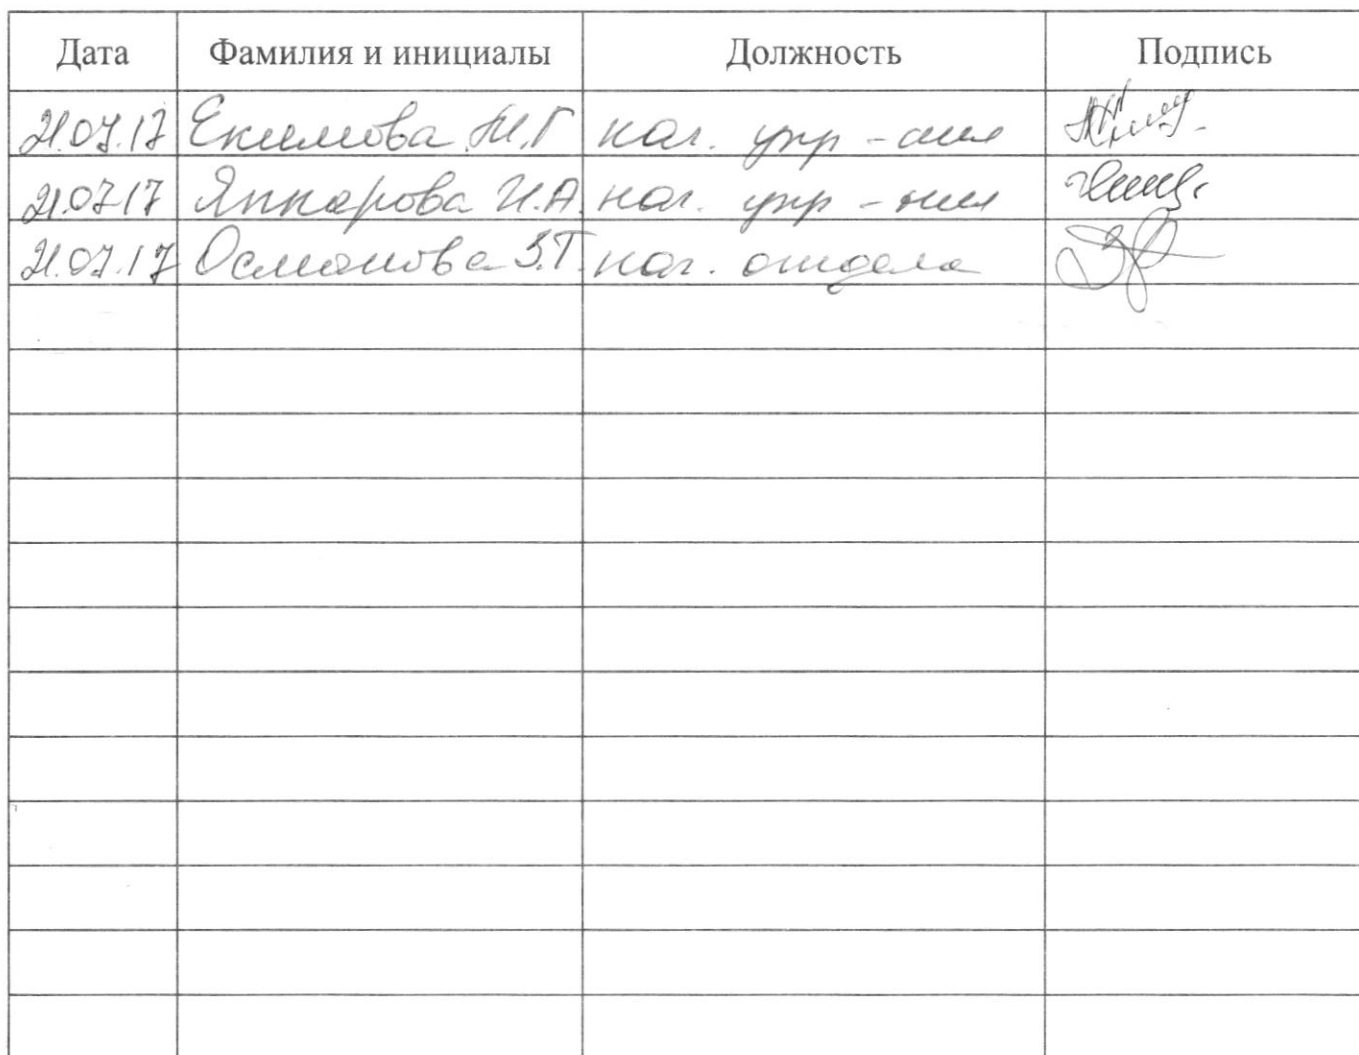 Дата Фамилия и инициалы Должность Подпись
21.07.17 Екимова М.Г нач. упр-ния
21.07.17 Яппарова И.А. нач. упр-ния
21.07.17 Османова З.Т. нач. отдела